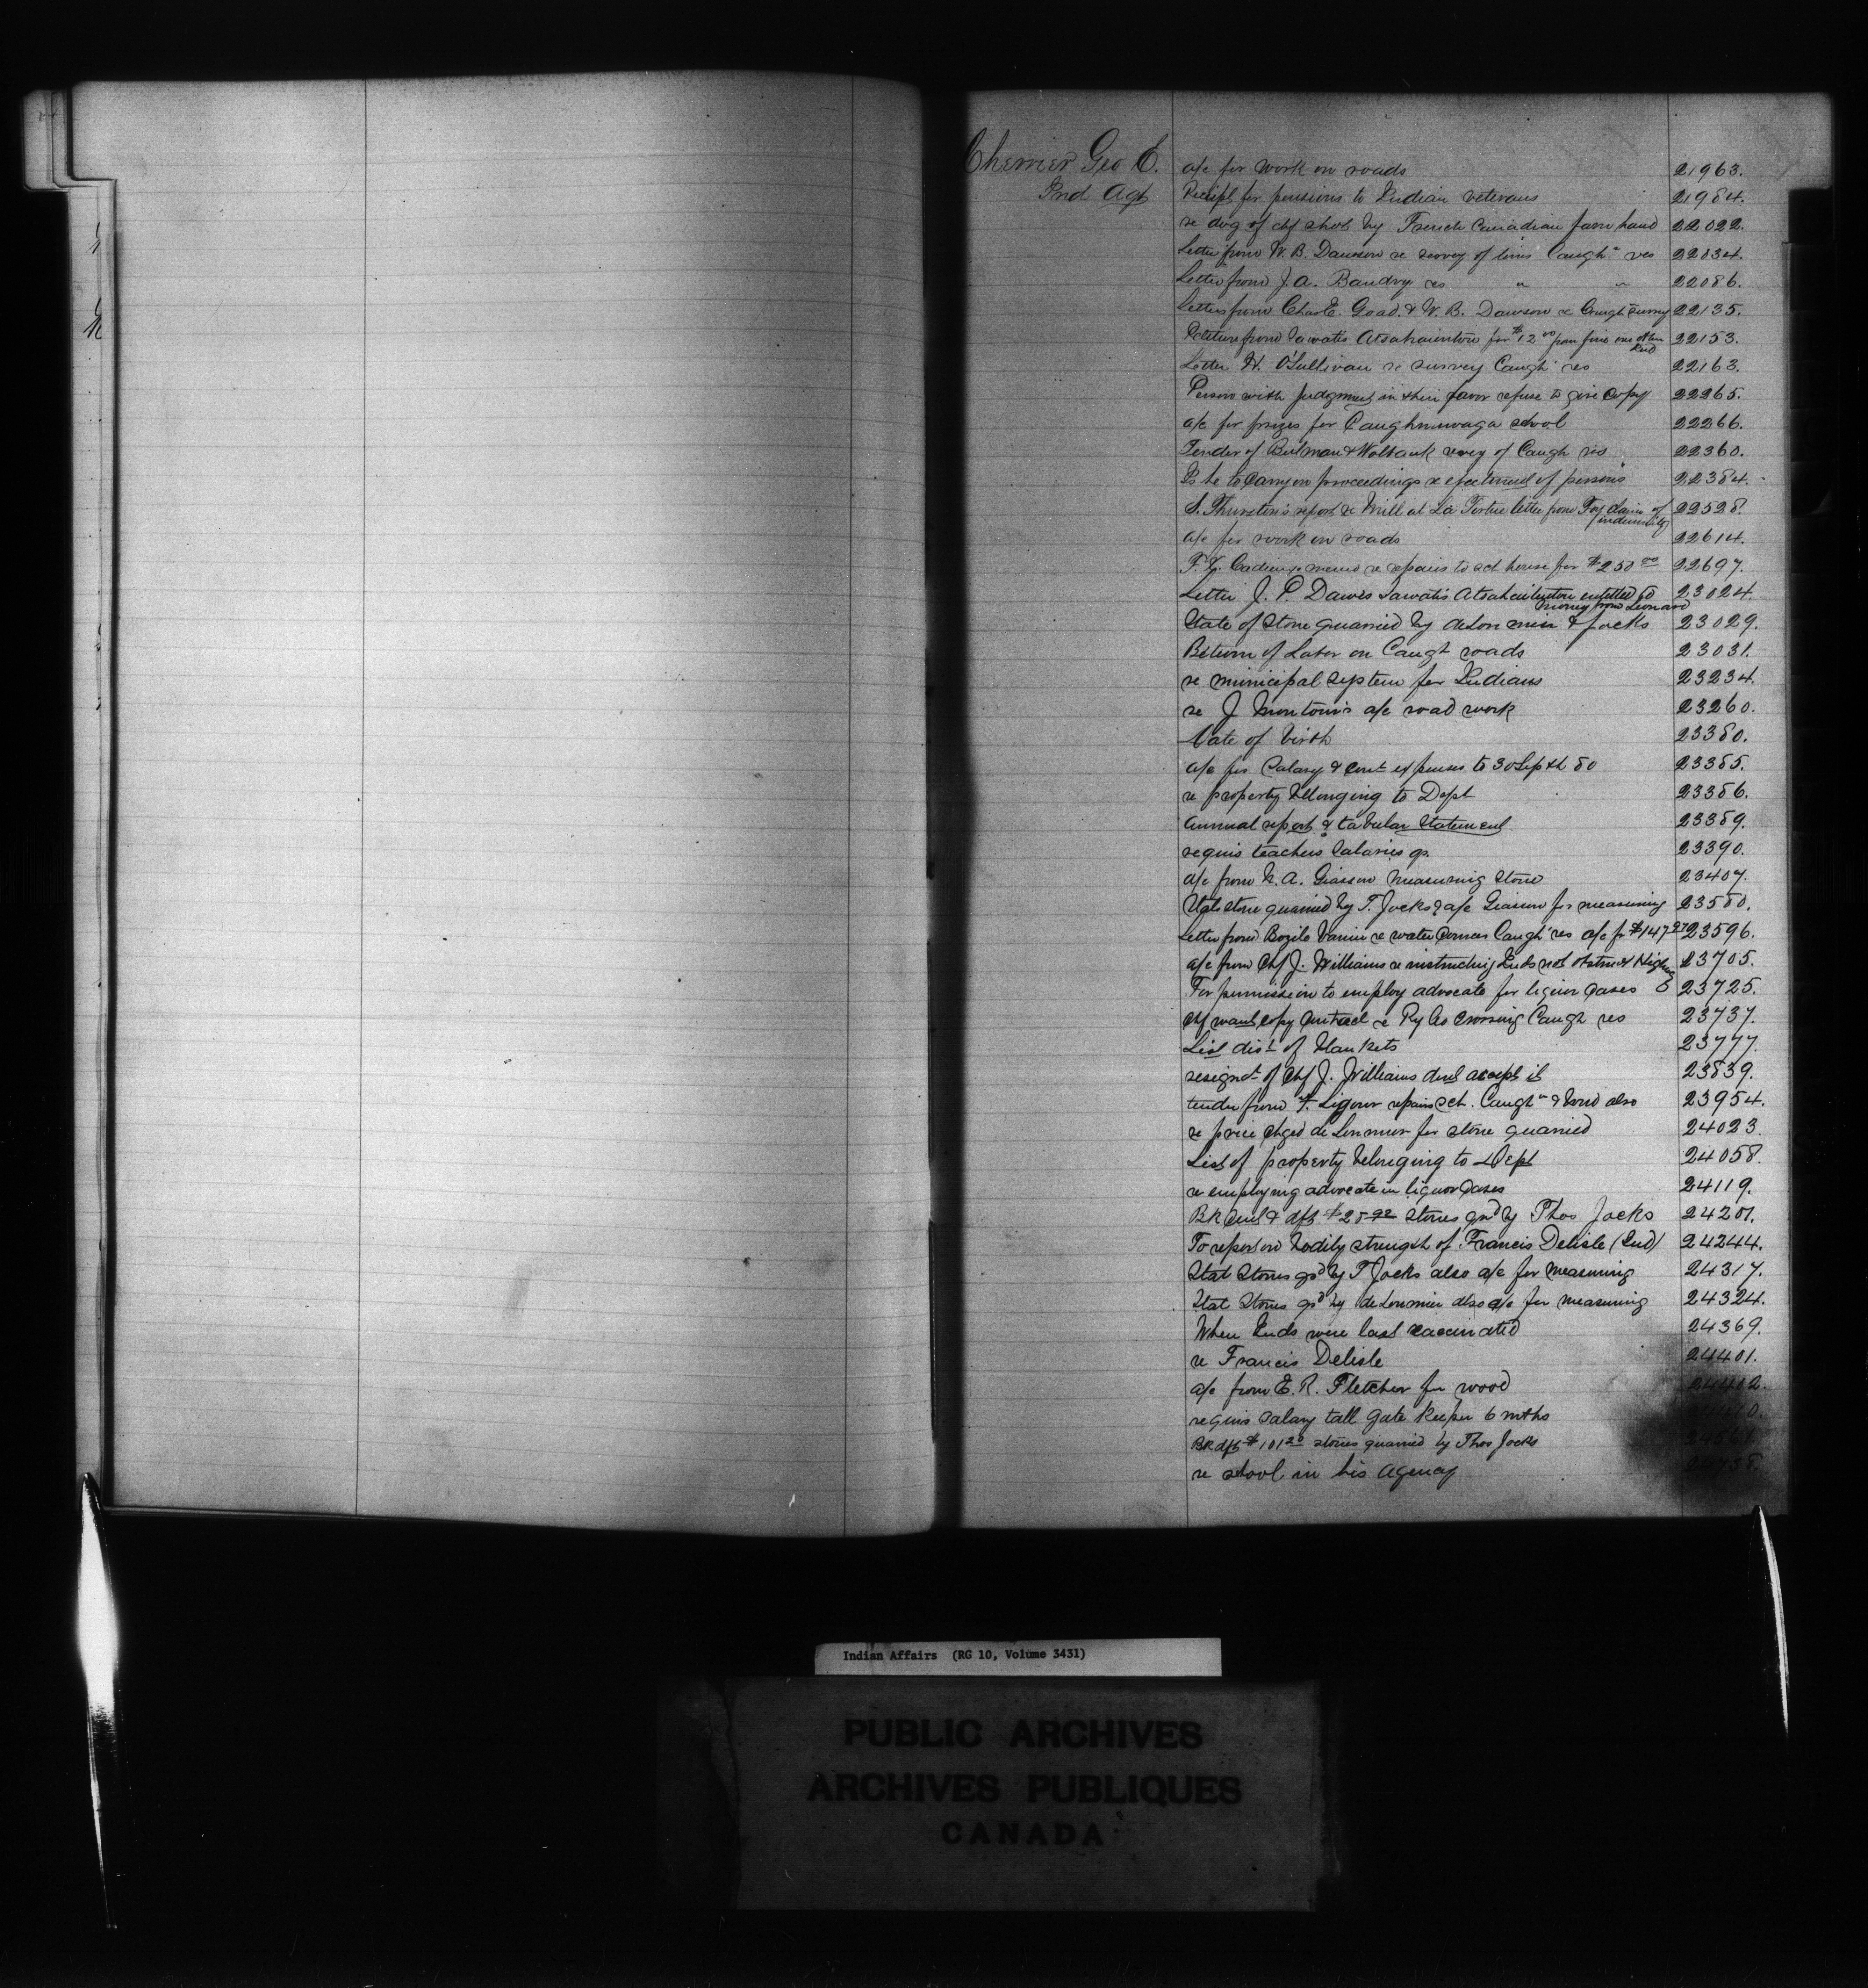 Cherrier Geo E. a/c for work on roads 21963.
Ind Agt Receipt for pensions to Indian veterans 21984.
re dog of chf shot by French Canadian farm hand 22022.
Letter from W. B. Dawson re survey of limits Caugh'a res 22034.
Letter from J. A. Baudry res " " 22086.
Letters from Chas E. Goad & W. B. Dawson re Caugh survey 22135.
Petition from Sawatis Atsahaienton for $12 00 from fine one other Ind 22153.
Letter H. O'Sullivan re survey Caugh' res 22163.
Person with judgment in their favor refuse to give copy 22265.
a/c for prizes for Caughnawaga school 22266.
Tender of Bulman & Wolbank survey of Caugh res 22360.
Is he to carry on proceedings re ejectment of persons 22384.
S. Thurston's report re Mill at La Tortue letter from Foy claim of indemnity 22528.
a/c for work on roads 22614.
F. X. Cadieux memo re repairs to sch house for $250 00 22697.
Letter J. P. Dawes Sawatis Atsahaienton entitled to money from Leonard 23024.
State of Stone quarried by deLorimier & Jocks 23029.
Return of Labor on Caugh roads 23031.
re municipal system for Indians 23234.
re J Montour's a/c road work 23260.
Date of birth 23380.
a/c for Salary & cont expenses to 30 Septh 80 23385.
re property belonging to Dept 23386.
Annual report & tabular Statement 23389.
requis teachers Salaries qr. 23390.
a/c from N. A. Giasson measuring Stone 23407.
Stat stone quarried by T. Jocks & a/c Giasson for measuring 23580.
Letter from Bozile Vanier re water courses Caugh' res a/c for $147 27 23596.
a/c from Chf J. Williams re instructing Inds not obstruct Highway 23705.
For permission to employ advocate for liquor cases 23725.
Chf want copy contract re Ry Co crossing Caugh res 23737.
List dist of blankets 23777.
resignt of Chf J. Williams Ind accept it 23839.
tender from F. Ligour repairs sch. Caugh'a & wood also 23954.
re price chged de Lorimier for stone quarried 24023
List of property belonging to Dept 24058.
re employing advocate in liquor cases 24119.
Bk dft $28 92 stones qrd by Thos Jocks 24201.
To report on bodily strength of Francis Delisle (Ind) 24244.
Stat Stones qrd by T Jocks also a/c for measuring 24317.
Stat Stones qrd by deLorimier also a/c for measuring 24324.
When Inds were last vaccinated 24369.
re Francis Delisle 24401.
a/c from E. R. Fletcher for wood 24402.
requis salary toll gate keeper 6 mths
Bk dft $101 20 stones quarried by Thos Jocks
re school in his Agency
Indian Affairs (RG 10, Volume 3431)
PUBLIC ARCHIVES
ARCHIVES PUBLIQUES
CANADA